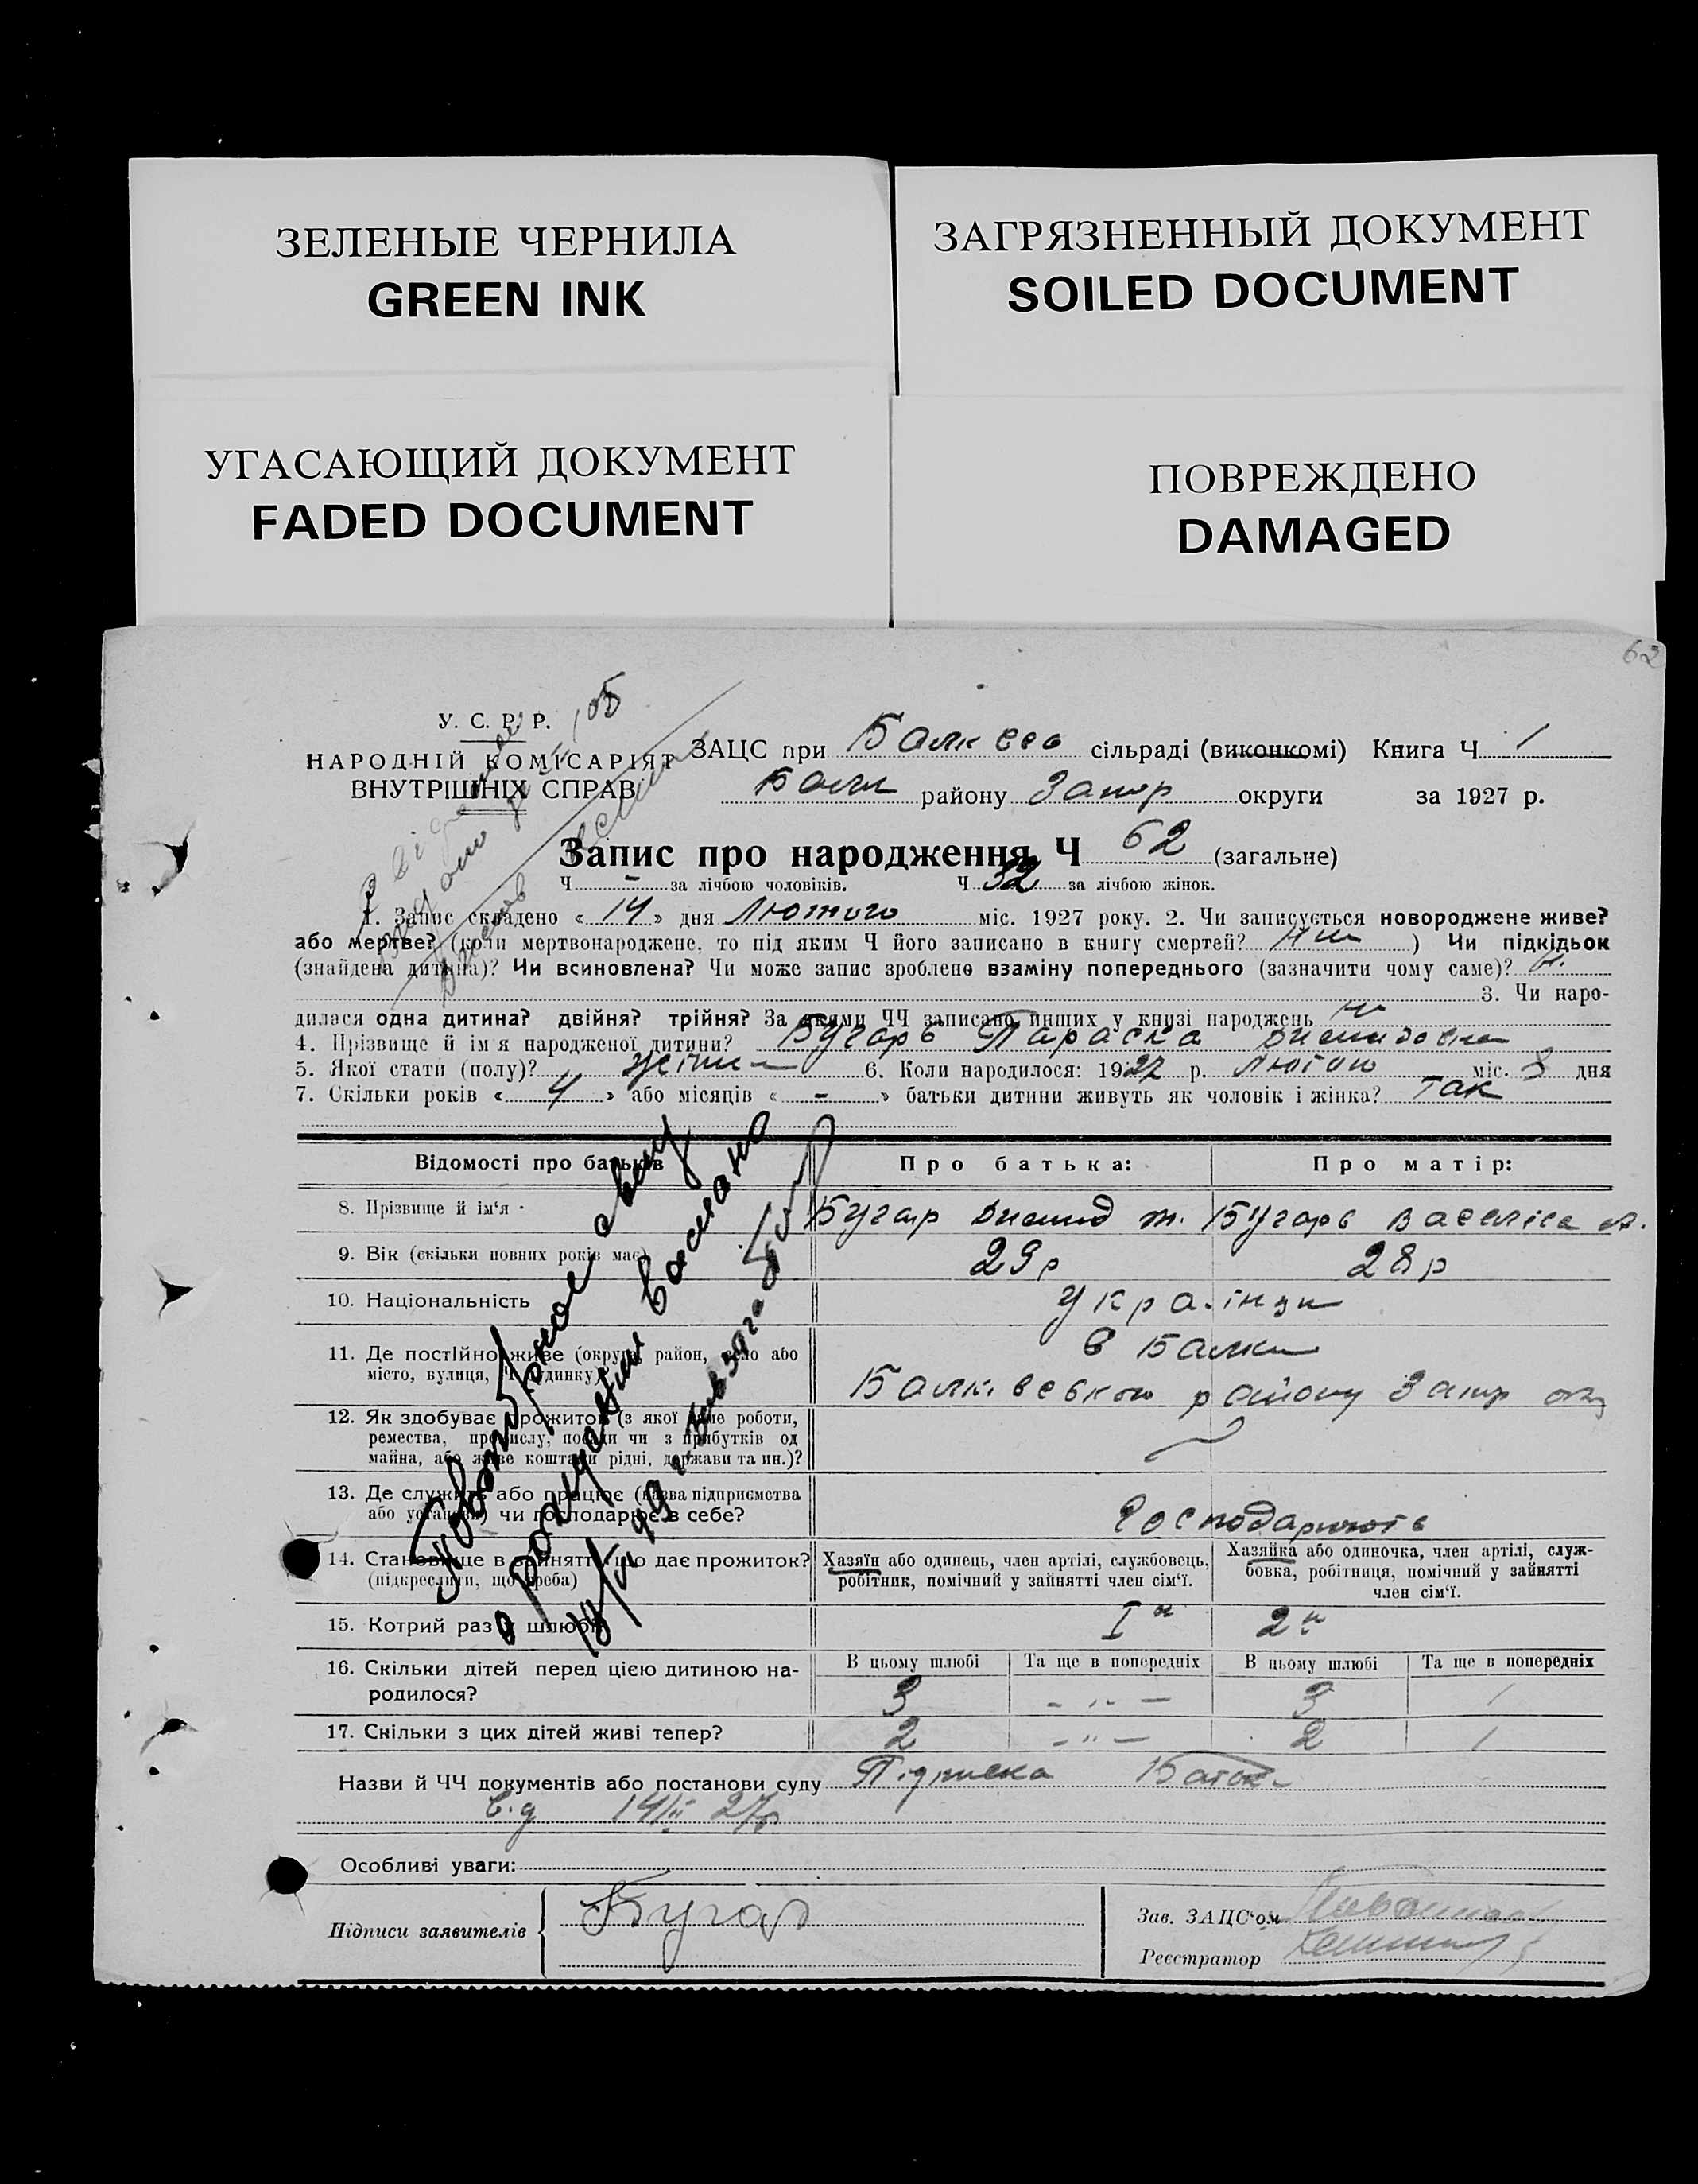 ЗЕЛЕНЫЕ ЧЕРНИЛА
GREEN INK
ЗАГРЯЗНЕННЫЙ ДОКУМЕНТ
SOILED DOCUMENT
УГАСАЮЩИЙ ДОКУМЕНТ
FADED DOCUMENT
ПОВРЕЖДЕНО
DAMAGED
62
У. С. Р. Р.
НАРОДНІЙ КОМІСАРІЯТ
ВНУТРІШНІХ СПРАВ
ЗАЦС при сільраді (виконкомі) Книга Ч 1
Балк району Запор округи за 1927 р.
Запис про народження Ч 62 (загальне)
Ч – за лічбою чоловіків. Ч 32 за лічбою жінок.
1. Запис складено « 14 » дня Лютого міс. 1927 року. 2. Чи записується новороджене живе?
або мертве? (коли мертвонароджене, то під яким Ч його записано в книгу смертей? ) Чи підкідьок
(знайдена дитина)? Чи всиновлена? Чи може запис зроблено взаміну попереднього (зазначити чому саме)?
3. Чи наро-
дилася одна дитина? двійня? трійня? За якими ЧЧ записано инших у книзі народжень
4. Прізвище й імя народженої дитини? Бугарь Параска
5. Якої стати (полу)? 6. Коли народилося: 1927 р. Лютого міс. 8 дня
7. Скільки років « 4 » або місяців « – » батьки дитини живуть як чоловік і жінка? Так
Відомості про батьків Про батька: Про матір:
8. Прізвище й ім'я Бугар Бугарь
9. Вік (скільки повних років має) 29 р 28 р
10. Національність Україн
11. Де постійно живе (округа, район, село або в Балки
місто, вулиця, Ч будинку)? району Запор
12. Як здобуває прожиток (з якої саме роботи,
ремества, промислу, посади чи з прибутків од
майна, або живе коштами рідні, держави та ин.)?
13. Де служить або працює (назва підприємства
або установи) чи господарює в себе? Господарюють
14. Становище в зайнятті, що дає прожиток? Хазяїн або одинець, член артілі, службовець, Хазяйка або одиночка, член артілі, служ-
(підкреслити, що треба) робітник, помічний у зайнятті член сім'ї. бовка, робітниця, помічний у зайнятті
член сім'ї.
15. Котрий раз у шлюбі? I й 2 й
16. Скільки дітей перед цією дитиною на- В цьому шлюбі Та ще в попередніх В цьому шлюбі Та ще в попередніх
родилося? 3 – „ – 3 1
17. Скільки з цих дітей живі тепер? 2 – „ – 2 1
Назви й ЧЧ документів або постанови суду Підписка
14/II 27р
Особливі уваги:
Підписи заявителів Бугар
Зав. ЗАЦС'ом
Реєстратор
Повторное